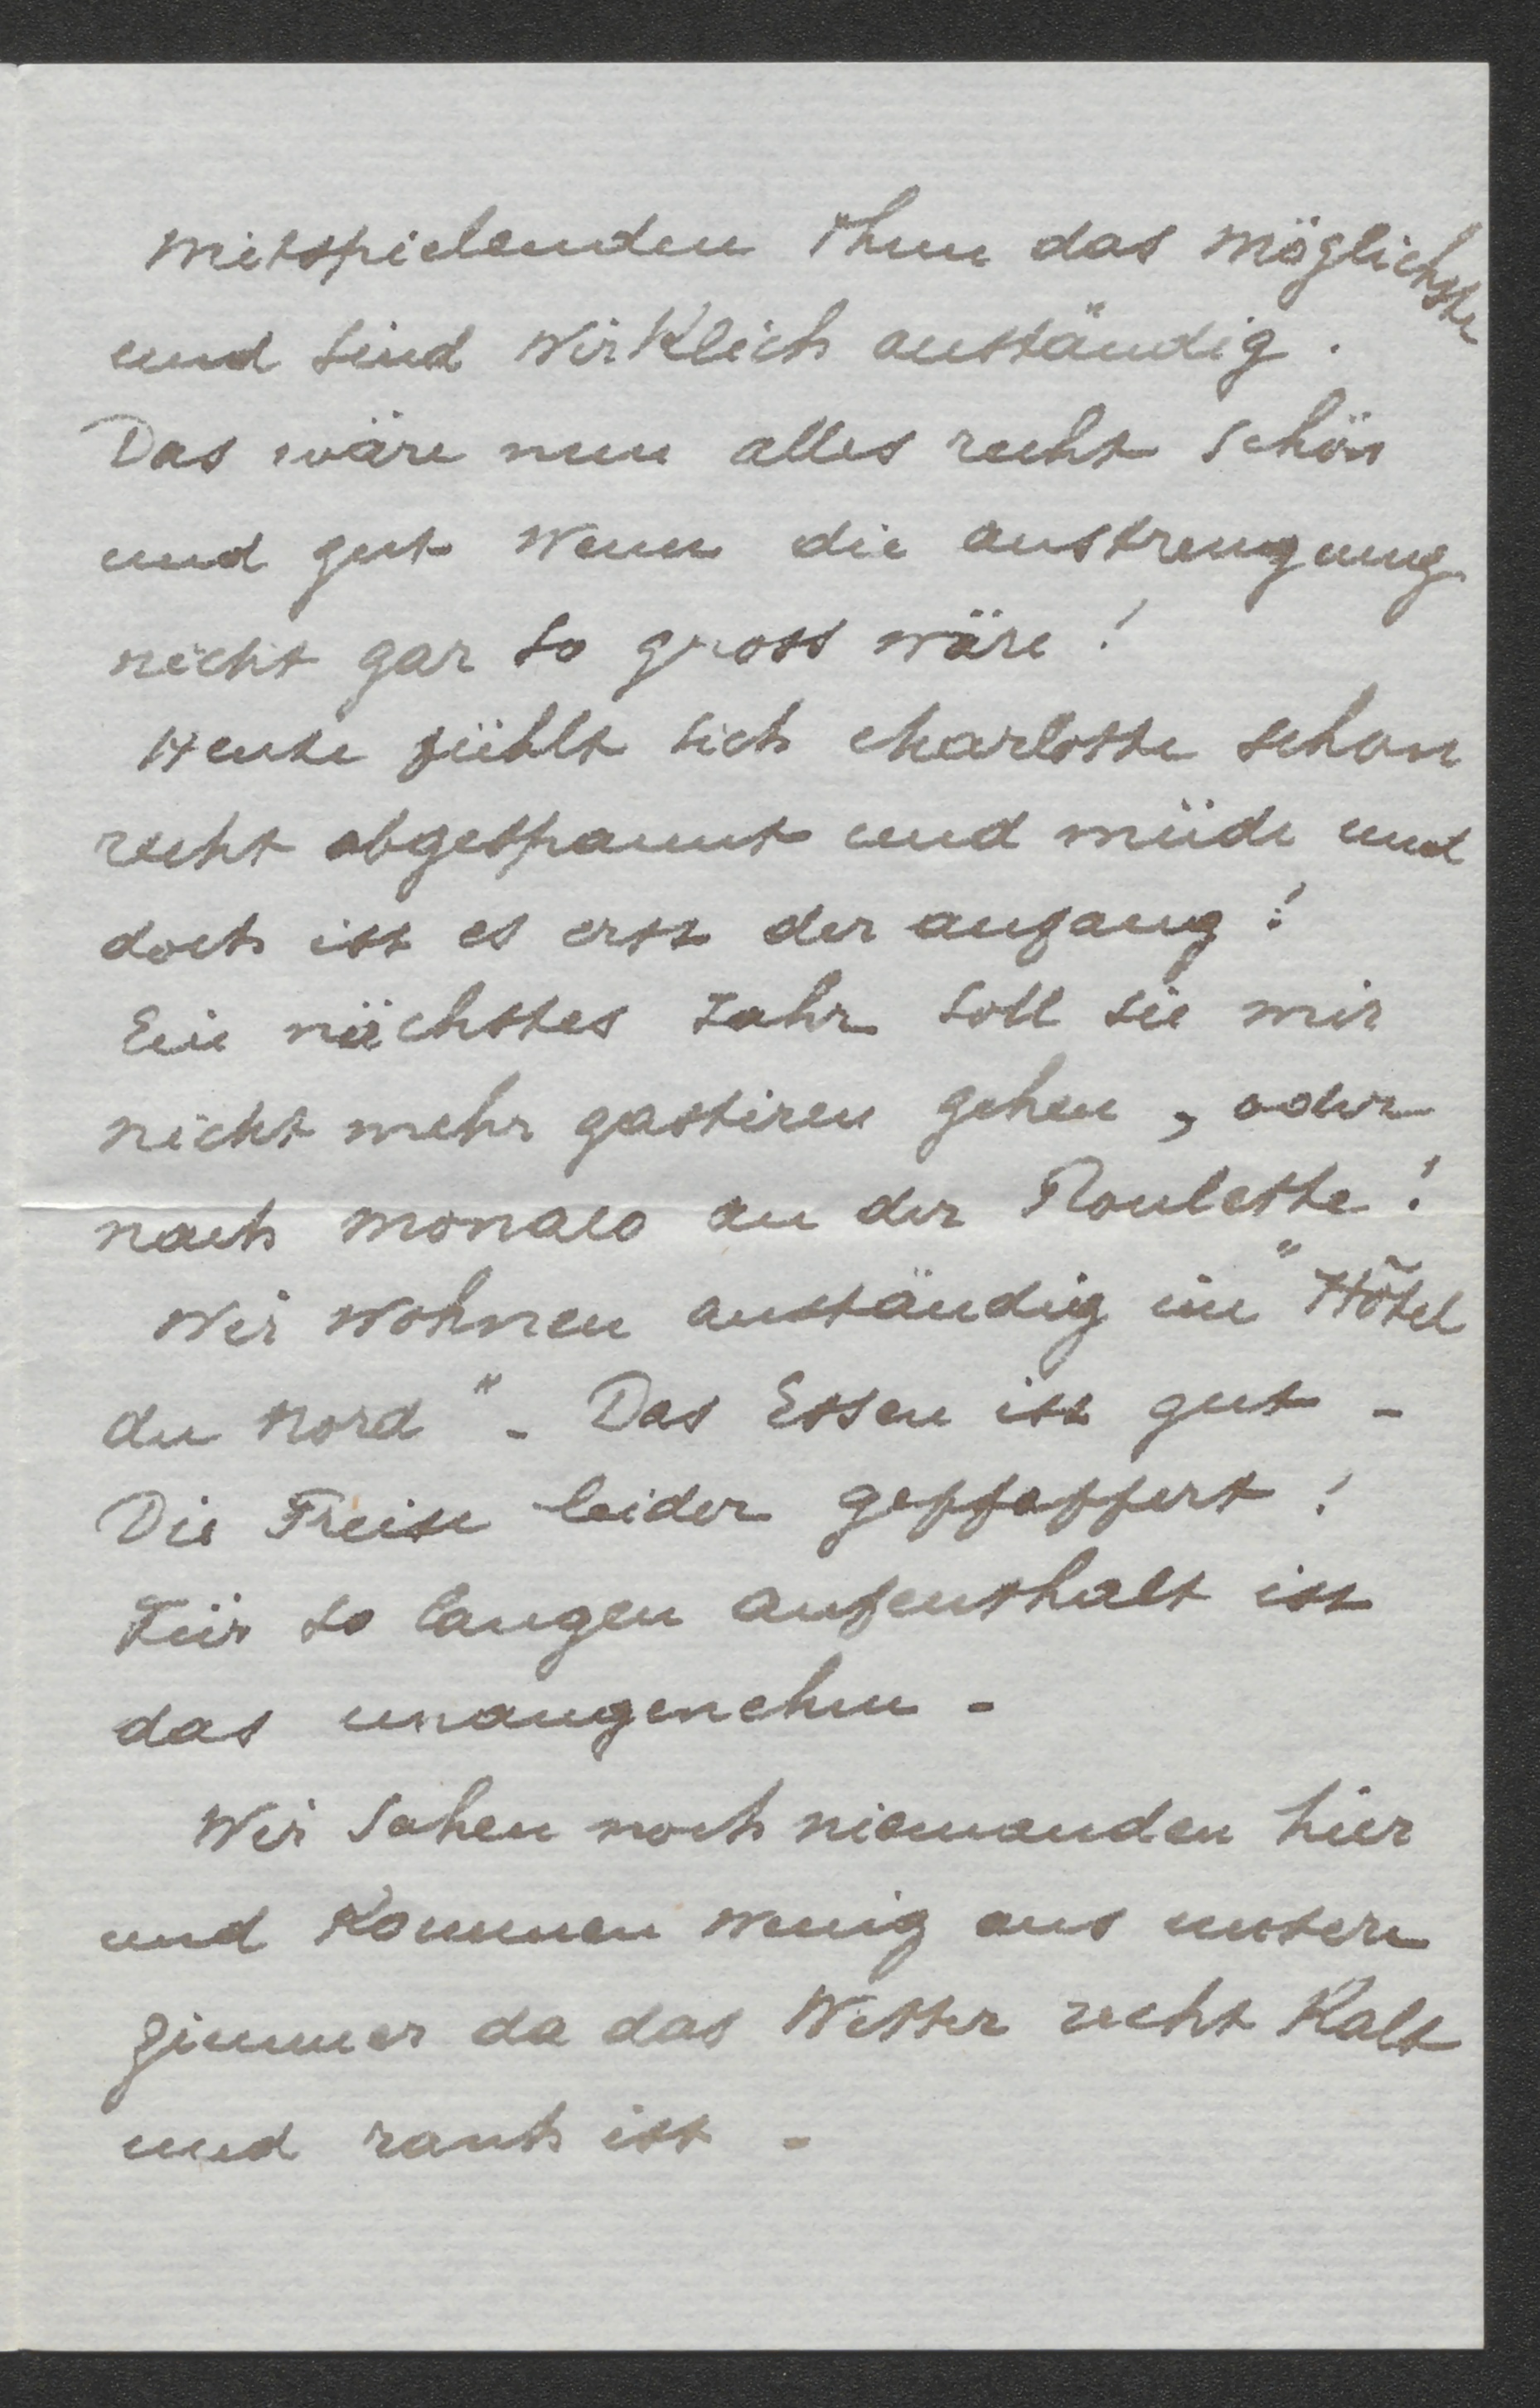 Mitspielenden thun das Möglichste
und sind wirklich anständig.
Das wäre nun alles recht schön
und gut wenn die anstrengung
nicht gar so gross wäre!
Heute fühlt sich Charlotte schon
recht abgespannt und müde und
doch ist es erst der anfang!
Ein nächstes Jahr soll sie mir
nicht mehr gastiren gehen, oder
nach Monaco an der Roulette!
Wir wohnen anständig im "Hôtel
du Nord" - Das Essen ist gut -
Die Preise leider gepfeffert!
Für so langen aufenthalt ist
das unangenehm -
Wir sahen noch niemanden hier
und kommen wenig aus unsern
Zimmer da das Wetter recht kalt
und rauh ist -